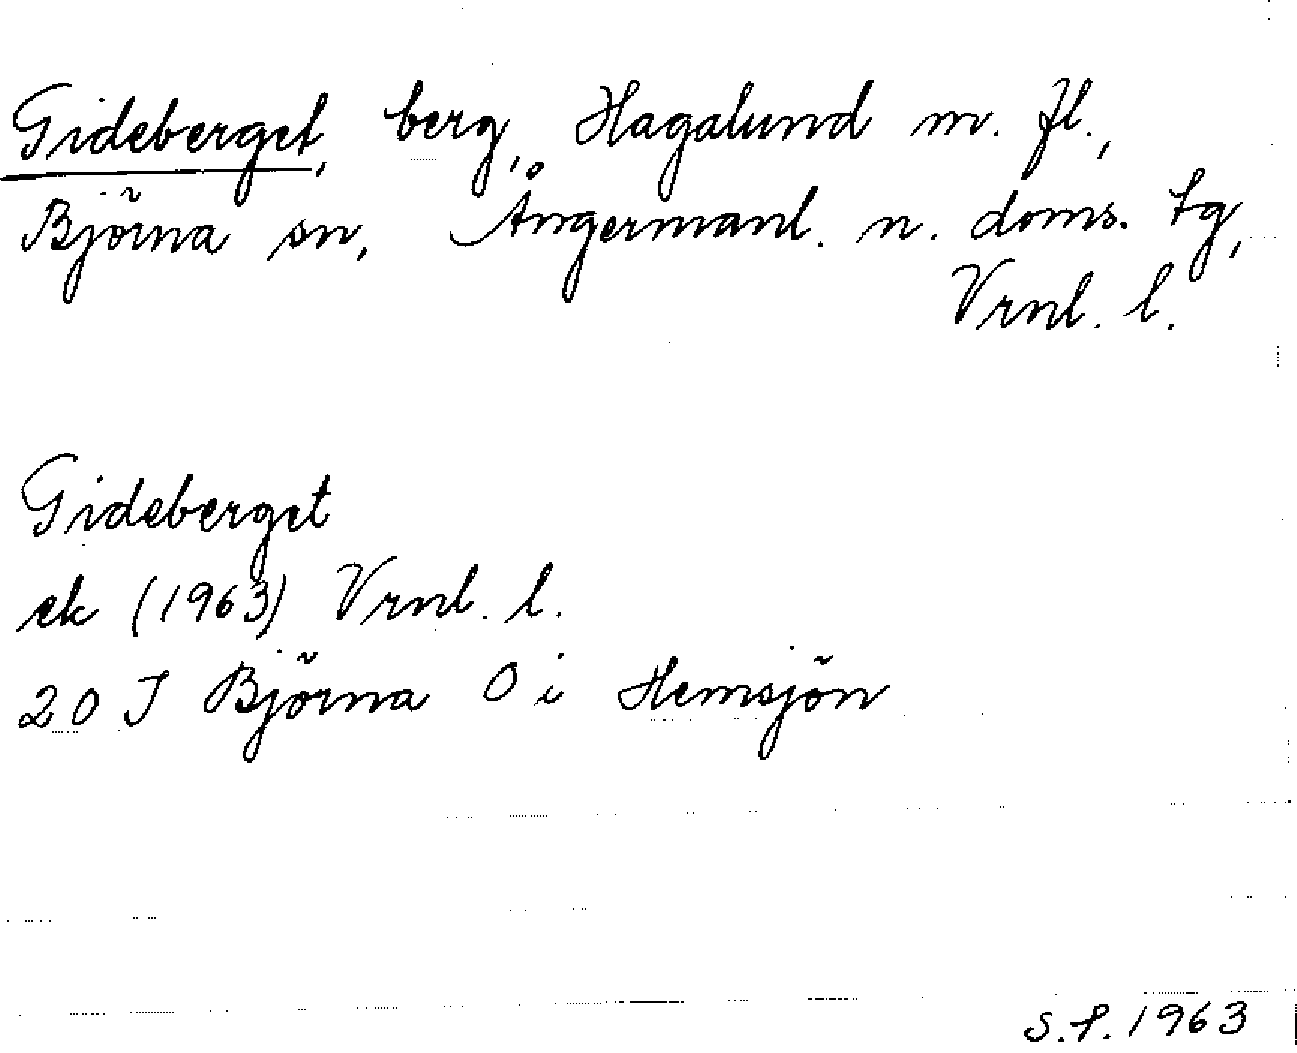 Gideberget, berg, Hagalund m. fl.,
Björna sn, Ångermanl. n. doms. tg,
Vrnl. l.
Gideberget
ek (1963) Vrnl. l.
20 J Björna O i Hemsjön
S.P. 1963